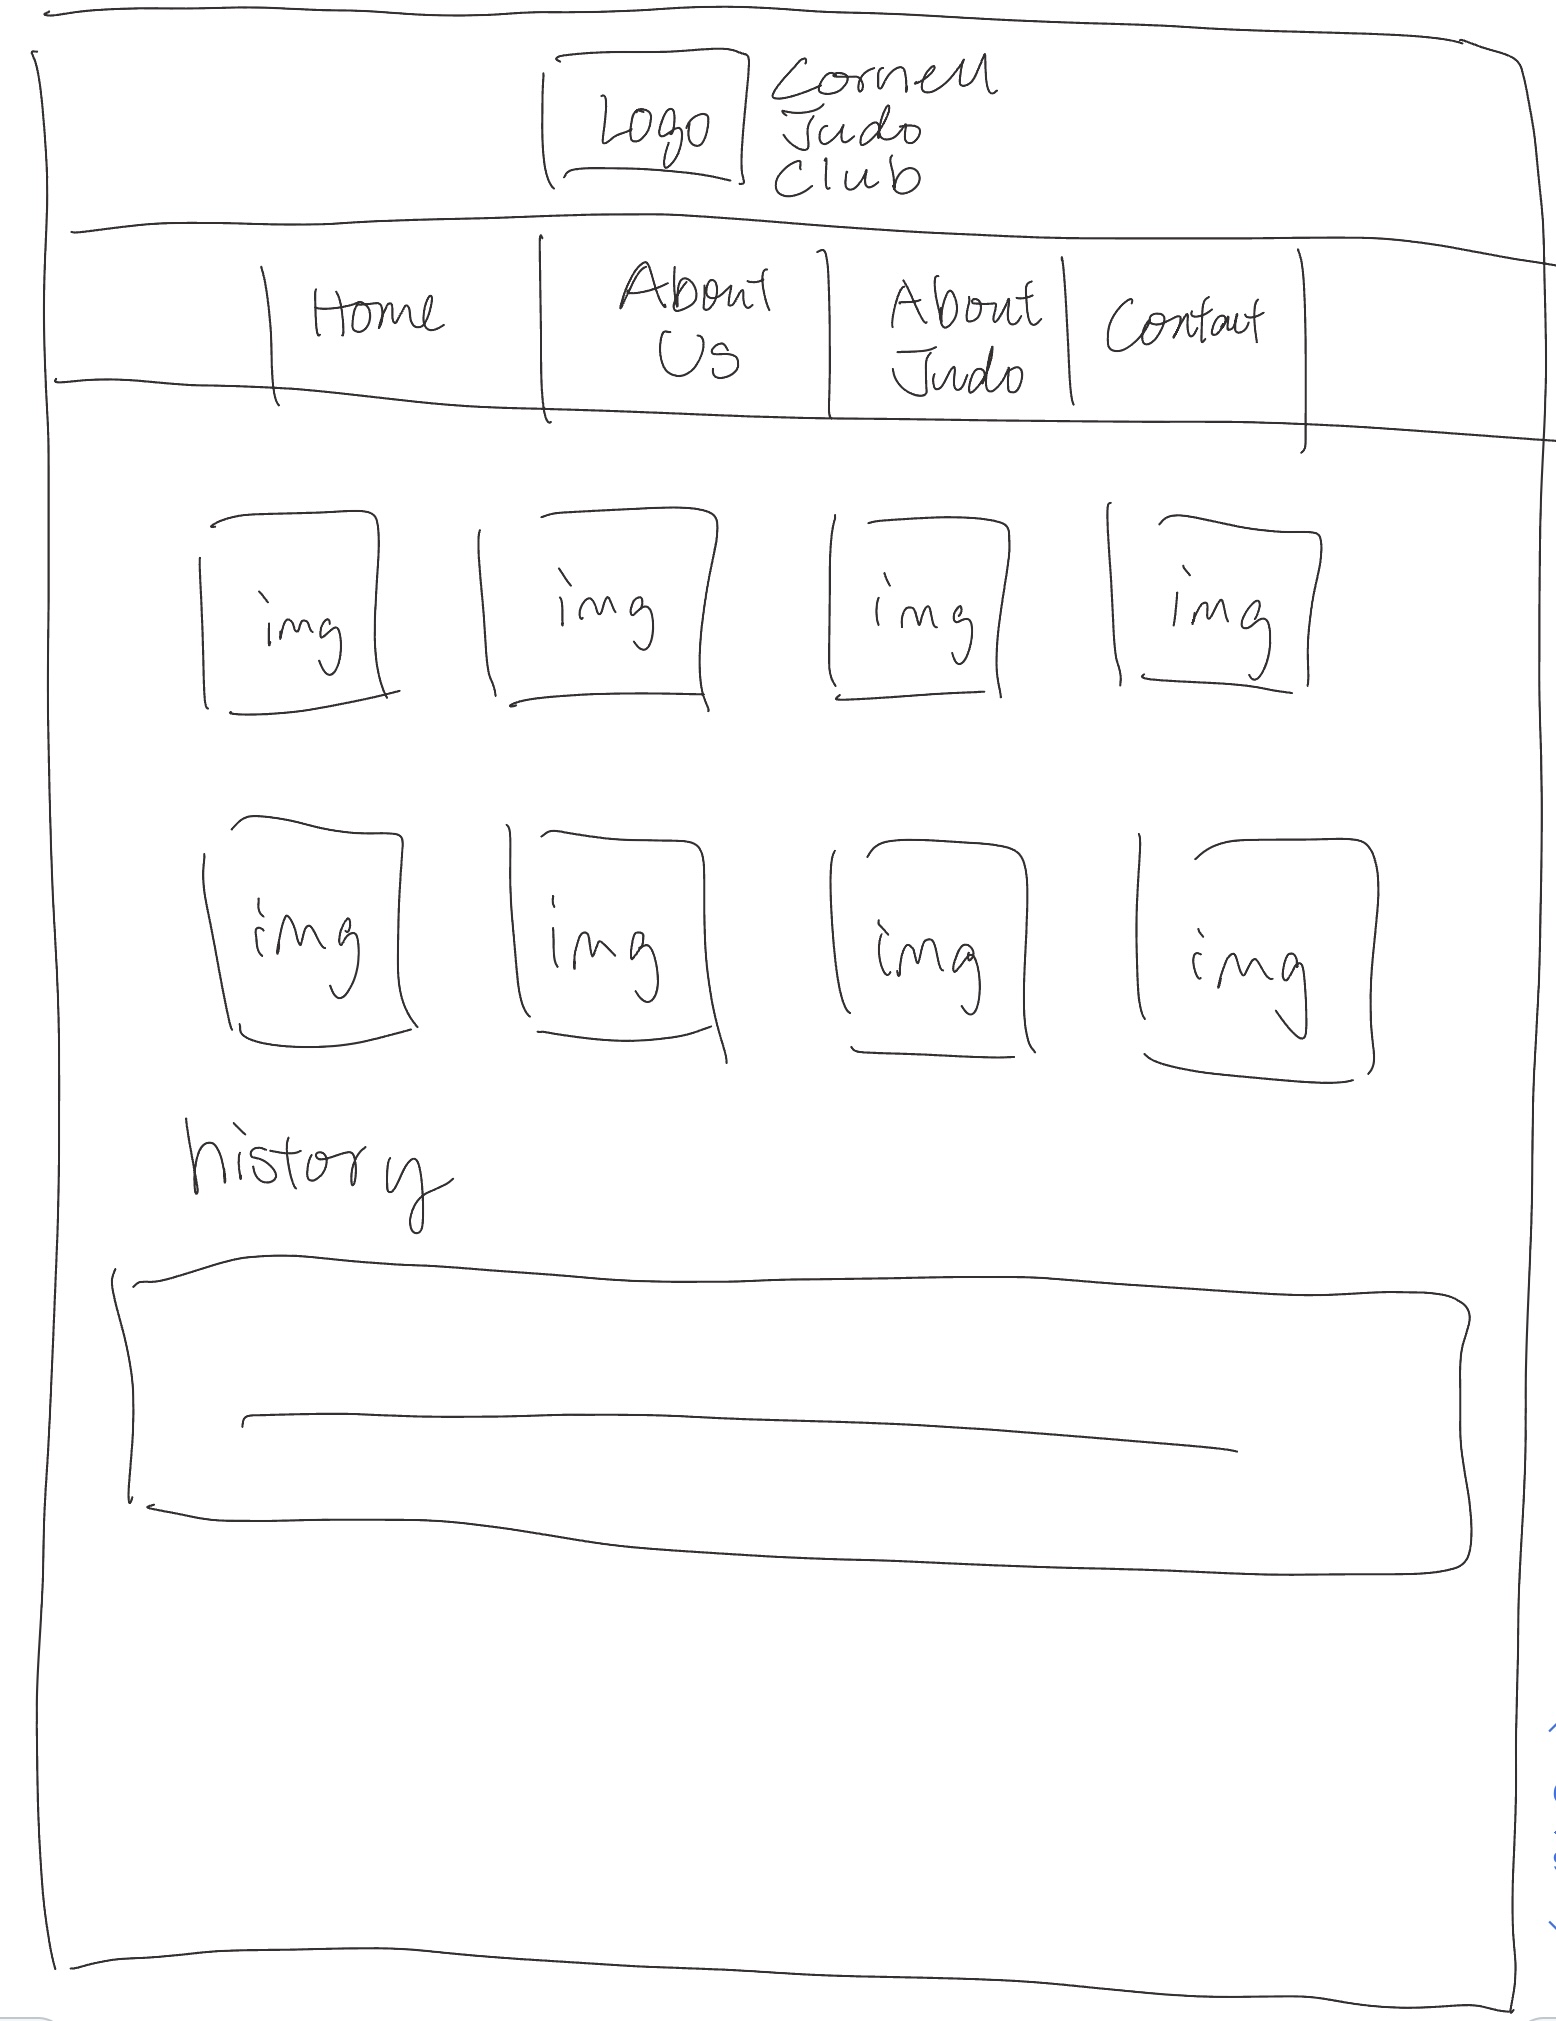 Logo
Cornell
Judo
Club
Home
About
Us
About
Judo
Contact
img
img
img
img
img
img
img
img
history